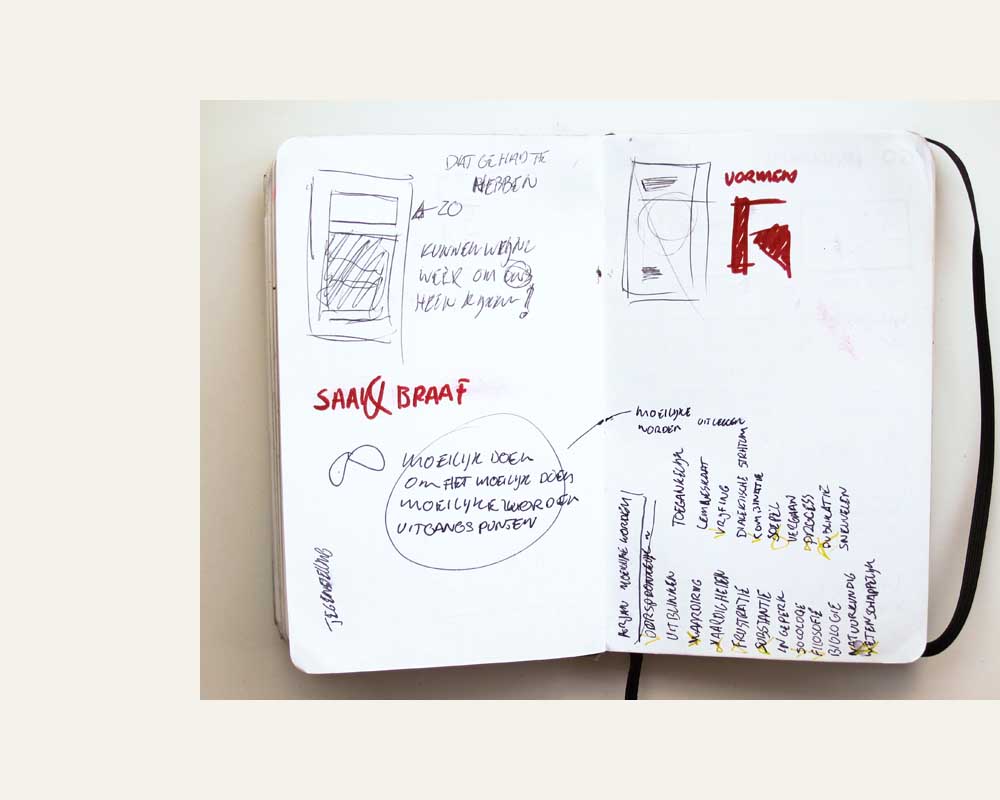 DAT GEHAD TE
HEBBEN
A-20
KUNNEN WE
WEER OM ONS
HEEN
SAAI & BRAAF
MOEILIJK DOEN
OM HET MOEILIJK DOEN
MOEILIJKE WOORDEN
UITGANGSPUNTEN
TEGENSTELLING
VORMEN
MOEILIJKE
WOORDEN UITLEGGEN
MOEILIJKE WOORDEN
OORSPRONKELIJK
UITBLINKEN
WAARDERING
VAARDIGHEDEN
FRUSTRATIE
SUBSTANTIE
INGEPERK
SOCOLOGE
FILOSOFIE
BIOLOGIE
NATUURKUNDIG
WETENSCHAPPELIJK
TOEGANKELIJK
WRIJVING
DIALEKTISCHE
KOMBINATIE
SOEPEL
VERGAAN
PROCESS
PUBLIKATIE
SNEUVELEN